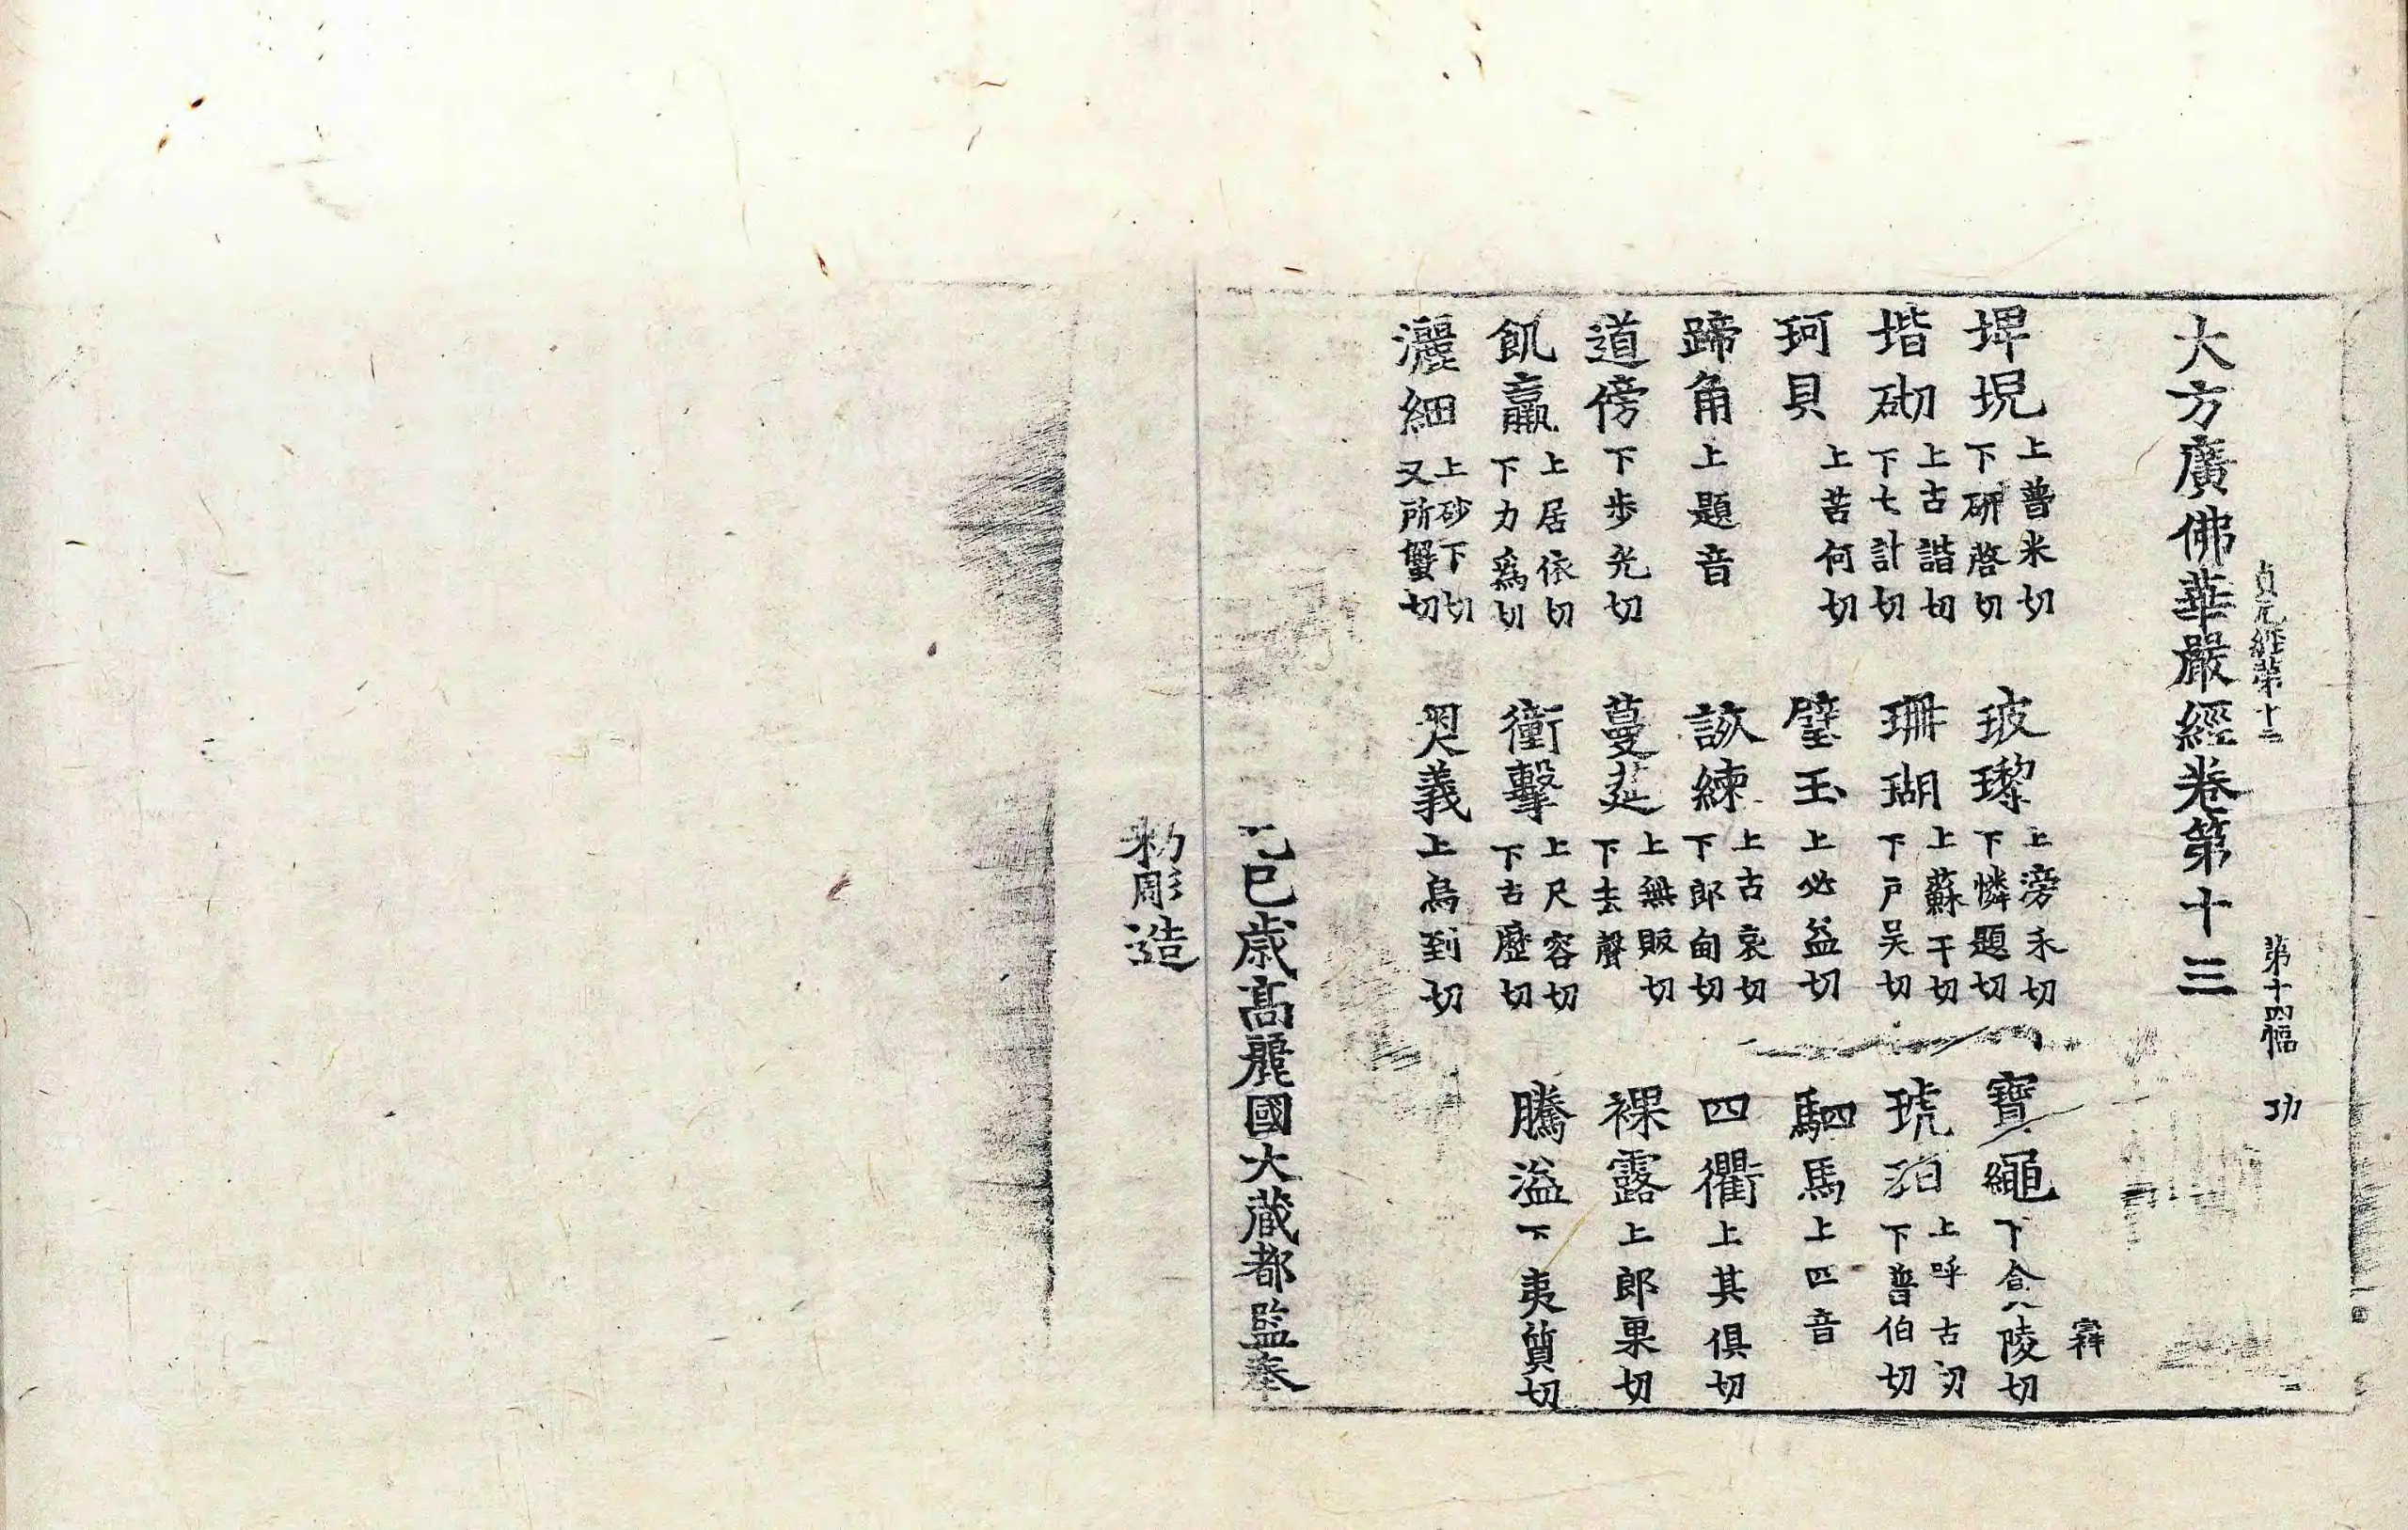 貞元經第十三 第十四幅 功
大方廣佛華嚴經卷第十三
埤堄上普米切下研啓切 玻瓈上滂禾切下憐題切 寶繩下食陵切
堦砌上古諧切下七計切 珊瑚上蘇干切下戶吴切 琥珀上呼古切下普伯切
珂貝上苦何切 璧玉上必益切 駟馬上四音
蹄角上題音 該練上古哀切下郎甸切 四衢上其俱切
道傍下步光切 蔓莚上無販切下去聲 裸露上郎果切
飢羸上居依切下力爲切 衝擊上尺容切下古歷切 騰溢下夷質切
灑細上砂下切又所蟹切 奧義上烏到切
巳歲高麗國大藏都監奉
勑彫造